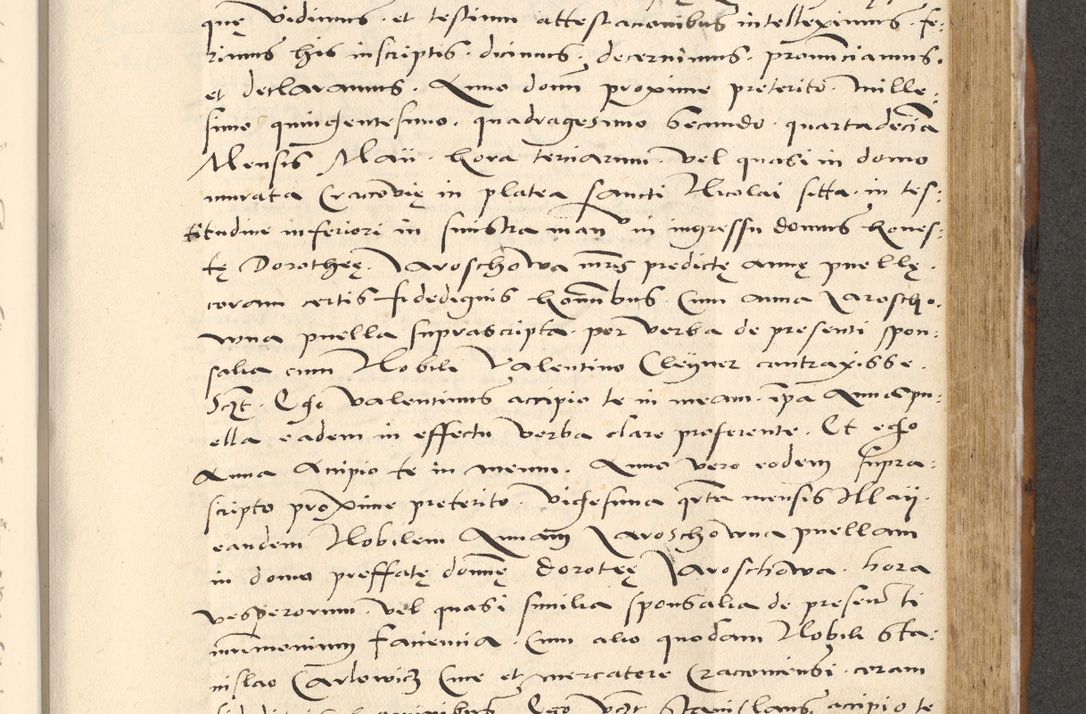 quę vidimus · et testium attestacionibus intelleximus · fe-
rimus his inscriptis · dicimus · decernimus · pronūciamus ·
et declaramus · Anno domī proxime preterito · mille-
simo quingentesimo · quadragesimo secundo · quartadecīa
Mensis Maii · hora terciarum · vel quasi in domo
murata Cracovię in platea sancti Nicolai sitta · in tes-
tudine inferiore in sinistra manu in ingressu domus hones-
tę Dorotheę · Jaroschowa mrīs predictę Annę puellę ·
coram certis fidedignis homībus · Cum Anna Jarosch-
wna puella suprascripta · per verba de presenti spon-
salia cum Nobili Valentino Cleyner contraxisse ·
Sczt · Ego valentinus accipio te in meam · ipa Anna pu-
ella eadem in effectu verba clare proferente · Et ego
Anna Accipio te in meum · Anno vero eodem supra-
scripto proxime preterito · vigesima qrta mensis Maii ·
eandem Nobilem Annam Jaroschowna puellam
in domo preffatę domnę Doroteę Jaroschowa · hora
vesperorum · vel quasi similia sponsalia de presenti
mrimonium faciencia · Cum alio quodam Nobili Sta-
nislao Carlowicz Cive et mercatore Cracoviensi · coram
Ego Stanislaus accipio te